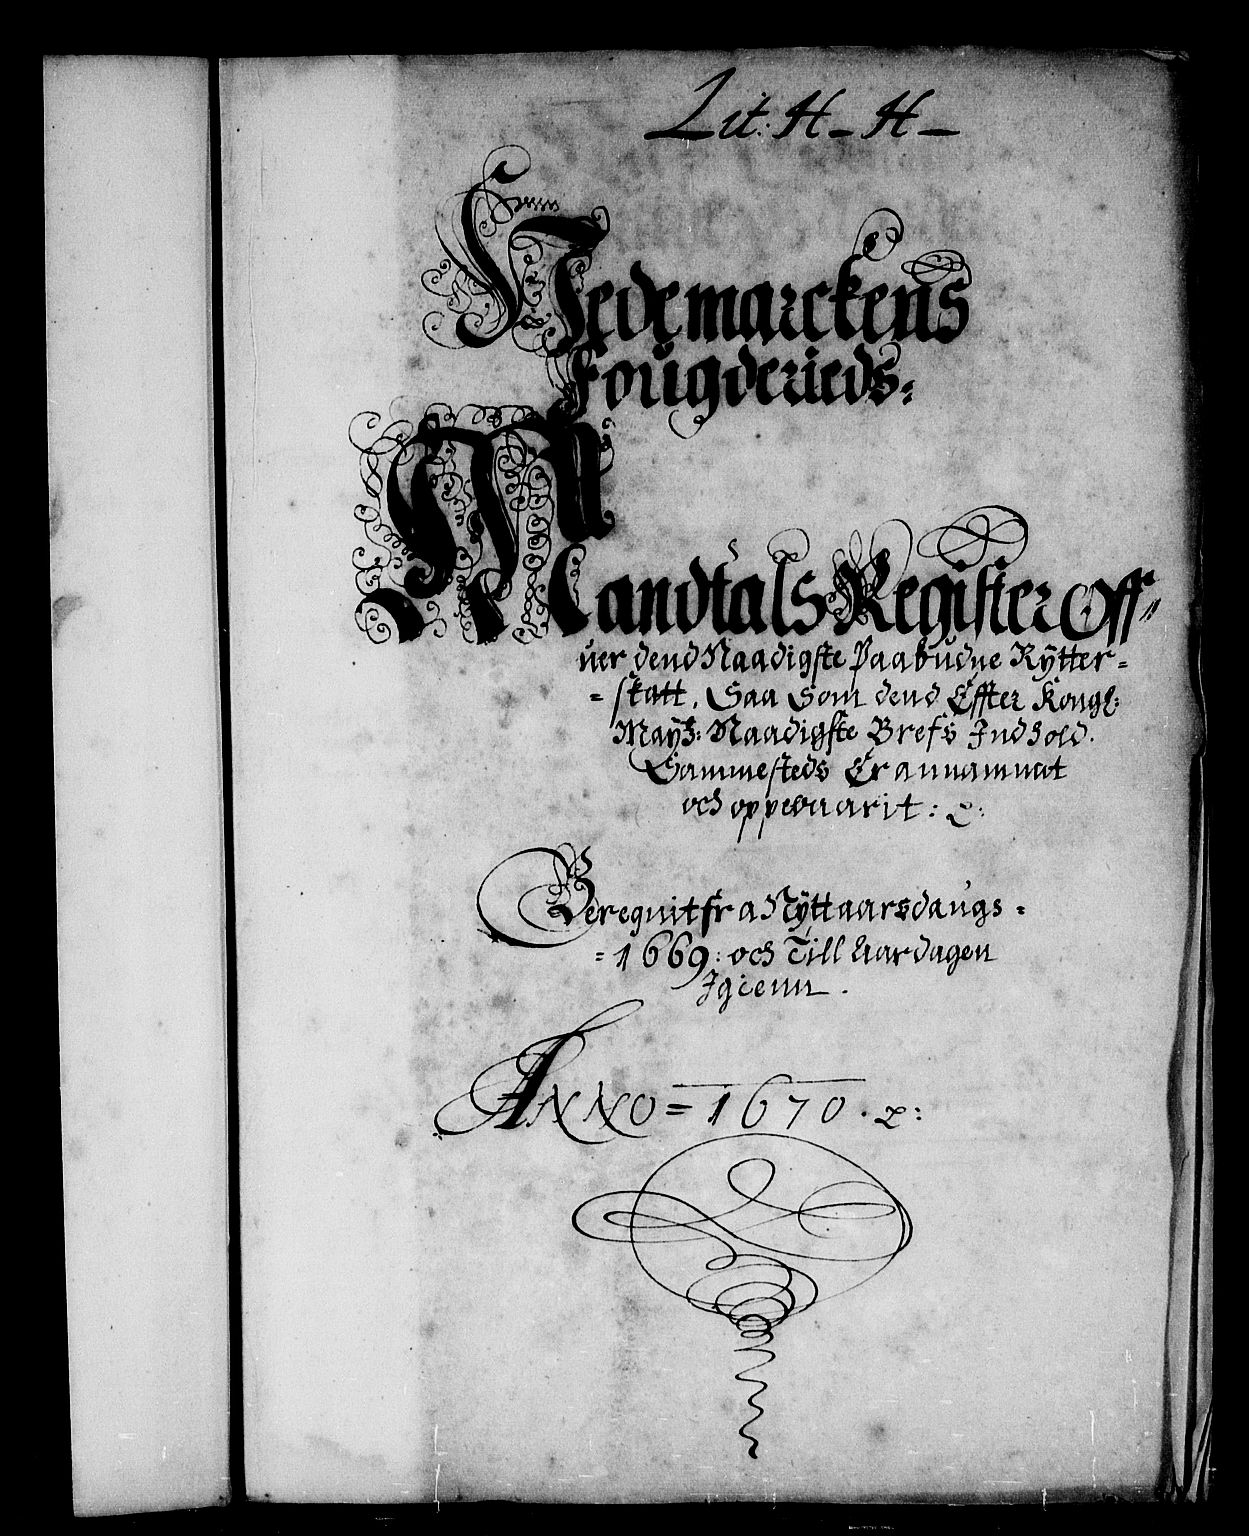 Lit: H - H -
Hedemarckens
Fougderieds:
Mandtals Register Off=
uer dend Naadigste Paabudne Rÿtter=
=skatt, Saa Som dend Effter Kongl:
Maÿts: Naadigste Brefs Indhold.
Sammesteds Er annammet
och oppebaarit: &:
Beregnit fra Nÿttaarsdaugs =
= 1669: och Till Aardagen
Igienn.
ANNO = 1670. &: